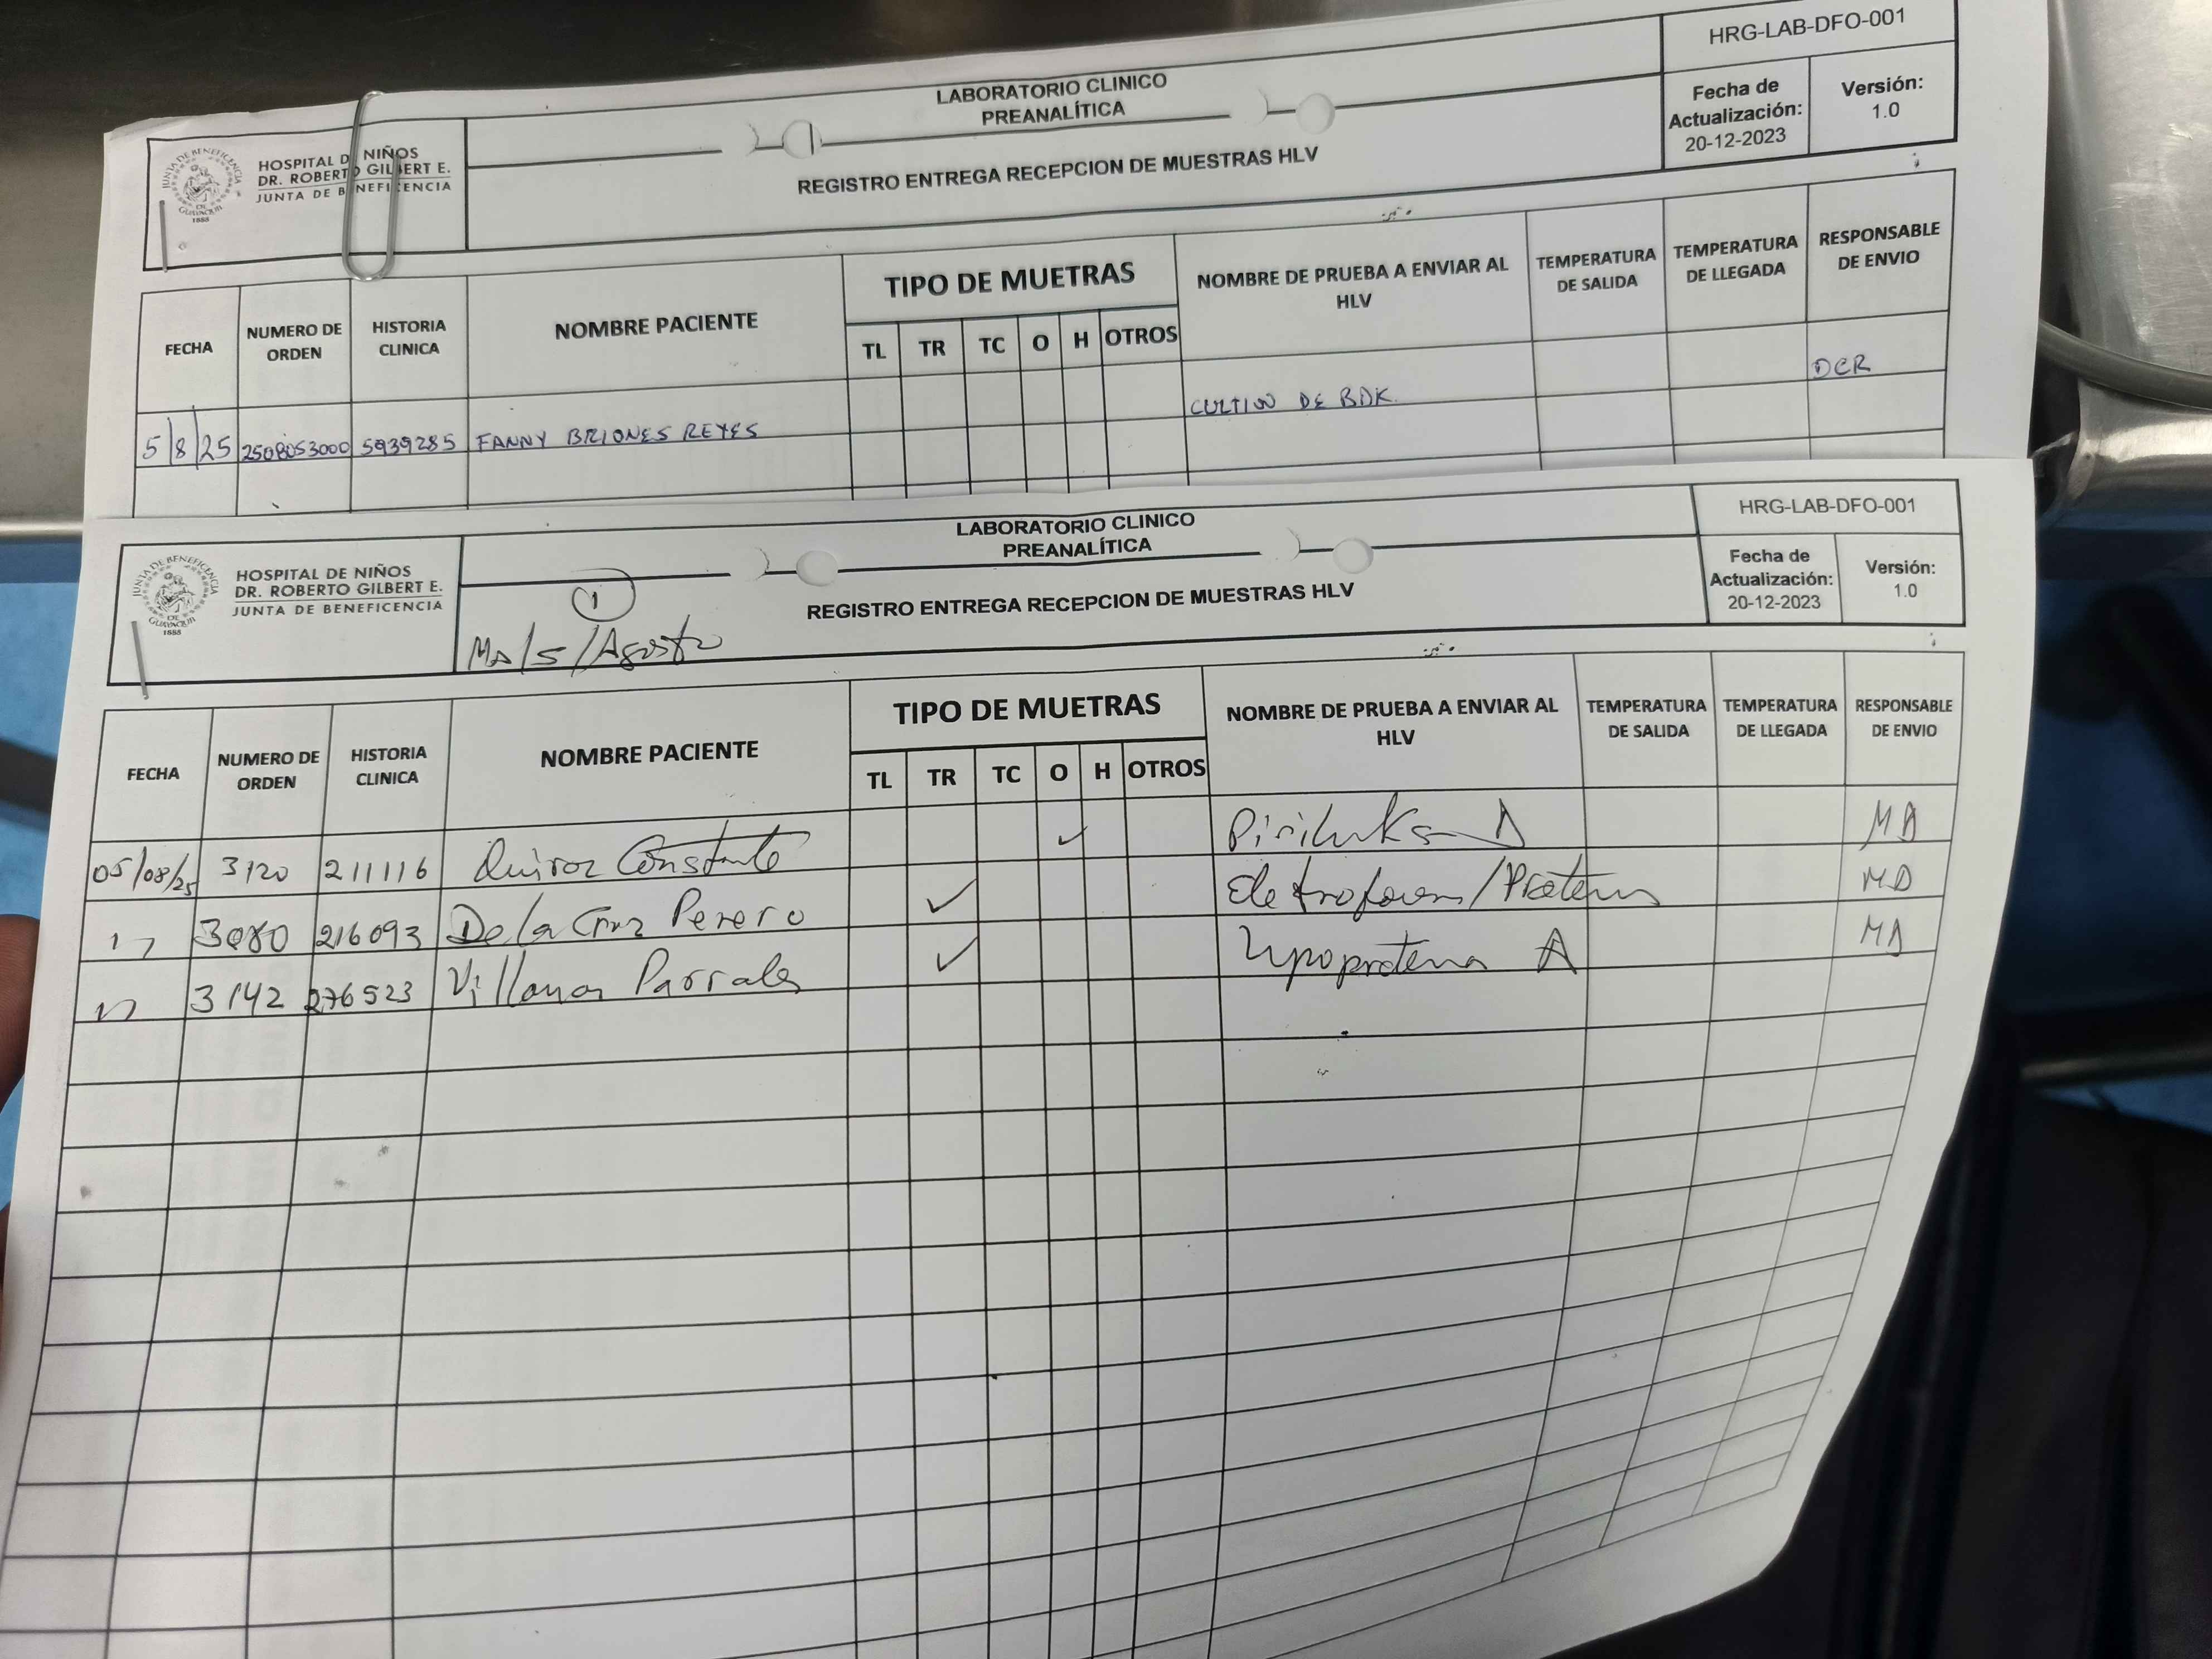 HRG-LAB-DFO-001
LABORATORIO CLINICO
PREANALÍTICA
Fecha de Actualización: 20-12-2023
Versión: 1.0
JUNTA DE BENEFICENCIA DE GUAYAQUIL 1888
HOSPITAL DE NIÑOS
DR. ROBERTO GILBERT E.
JUNTA DE BENEFICENCIA
REGISTRO ENTREGA RECEPCION DE MUESTRAS HLV
FECHA NUMERO DE ORDEN HISTORIA CLINICA NOMBRE PACIENTE TIPO DE MUETRAS NOMBRE DE PRUEBA A ENVIAR AL HLV TEMPERATURA DE SALIDA TEMPERATURA DE LLEGADA RESPONSABLE DE ENVIO
TL TR TC O H OTROS
5/8/25 2508053000 5939285 FANNY BRIONES REYES CULTIVO DE BAK. DCR
HRG-LAB-DFO-001
LABORATORIO CLINICO
PREANALÍTICA
Fecha de Actualización: 20-12-2023
Versión: 1.0
JUNTA DE BENEFICENCIA DE GUAYAQUIL 1888
HOSPITAL DE NIÑOS
DR. ROBERTO GILBERT E.
JUNTA DE BENEFICENCIA
1
REGISTRO ENTREGA RECEPCION DE MUESTRAS HLV
Ma/5/Agosto
FECHA NUMERO DE ORDEN HISTORIA CLINICA NOMBRE PACIENTE TIPO DE MUETRAS NOMBRE DE PRUEBA A ENVIAR AL HLV TEMPERATURA DE SALIDA TEMPERATURA DE LLEGADA RESPONSABLE DE ENVIO
TL TR TC O H OTROS
05/08/25 3120 211116 Quiroz Constante ✓ MA
" 3080 216093 De la Cruz Perero ✓ MA
" 3142 276523 Parrales ✓ Lipoproteina A MA